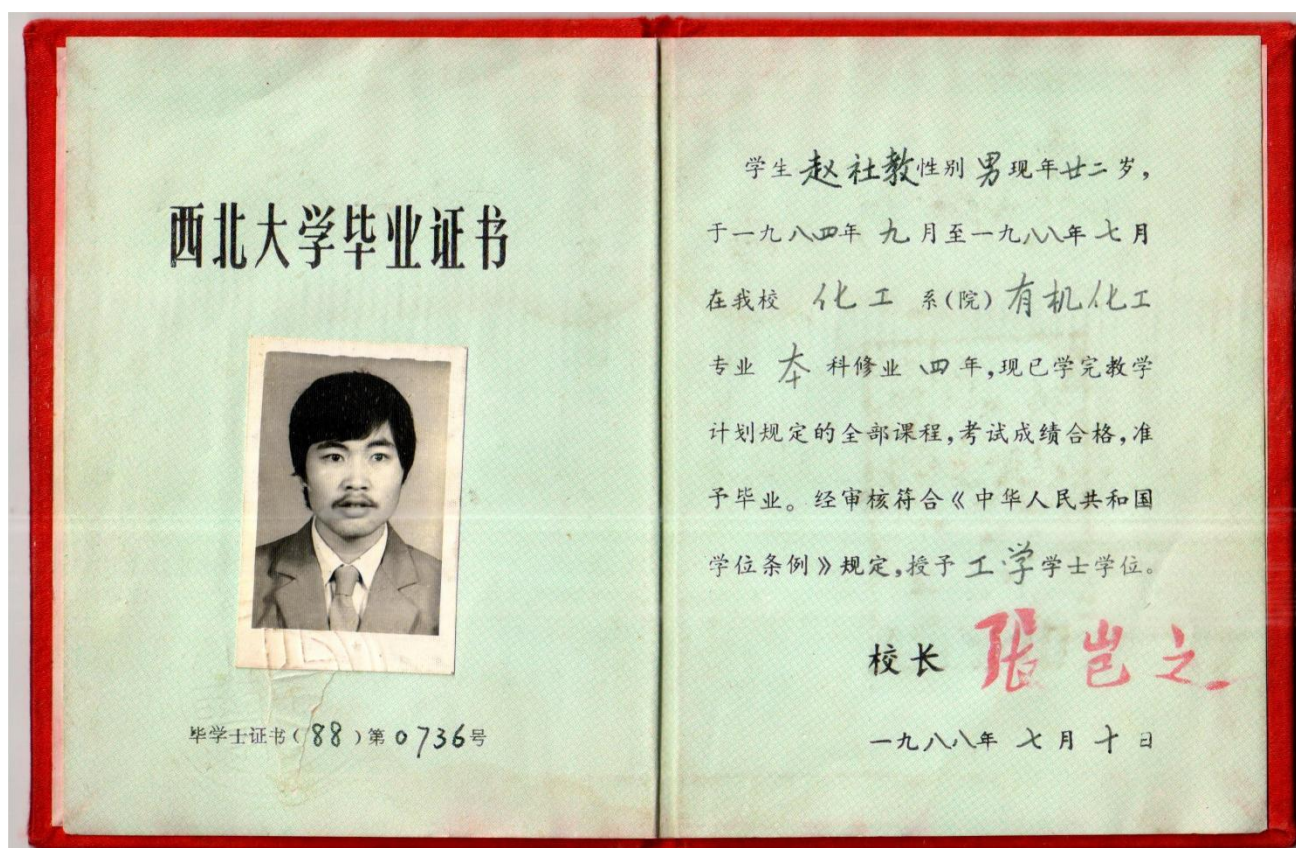 西北大学毕业证书
毕学士证书(88)第0736号
学生赵社教性别男现年廿二岁,
于一九八四年九月至一九八八年七月
在我校 化工 系(院)有机化工
专业 本 科修业 四 年,现已学完教学
计划规定的全部课程,考试成绩合格,准
予毕业。经审核符合《中华人民共和国
学位条例》规定,授予工学学士学位。
校长 张岂之
一九八八年七月十日